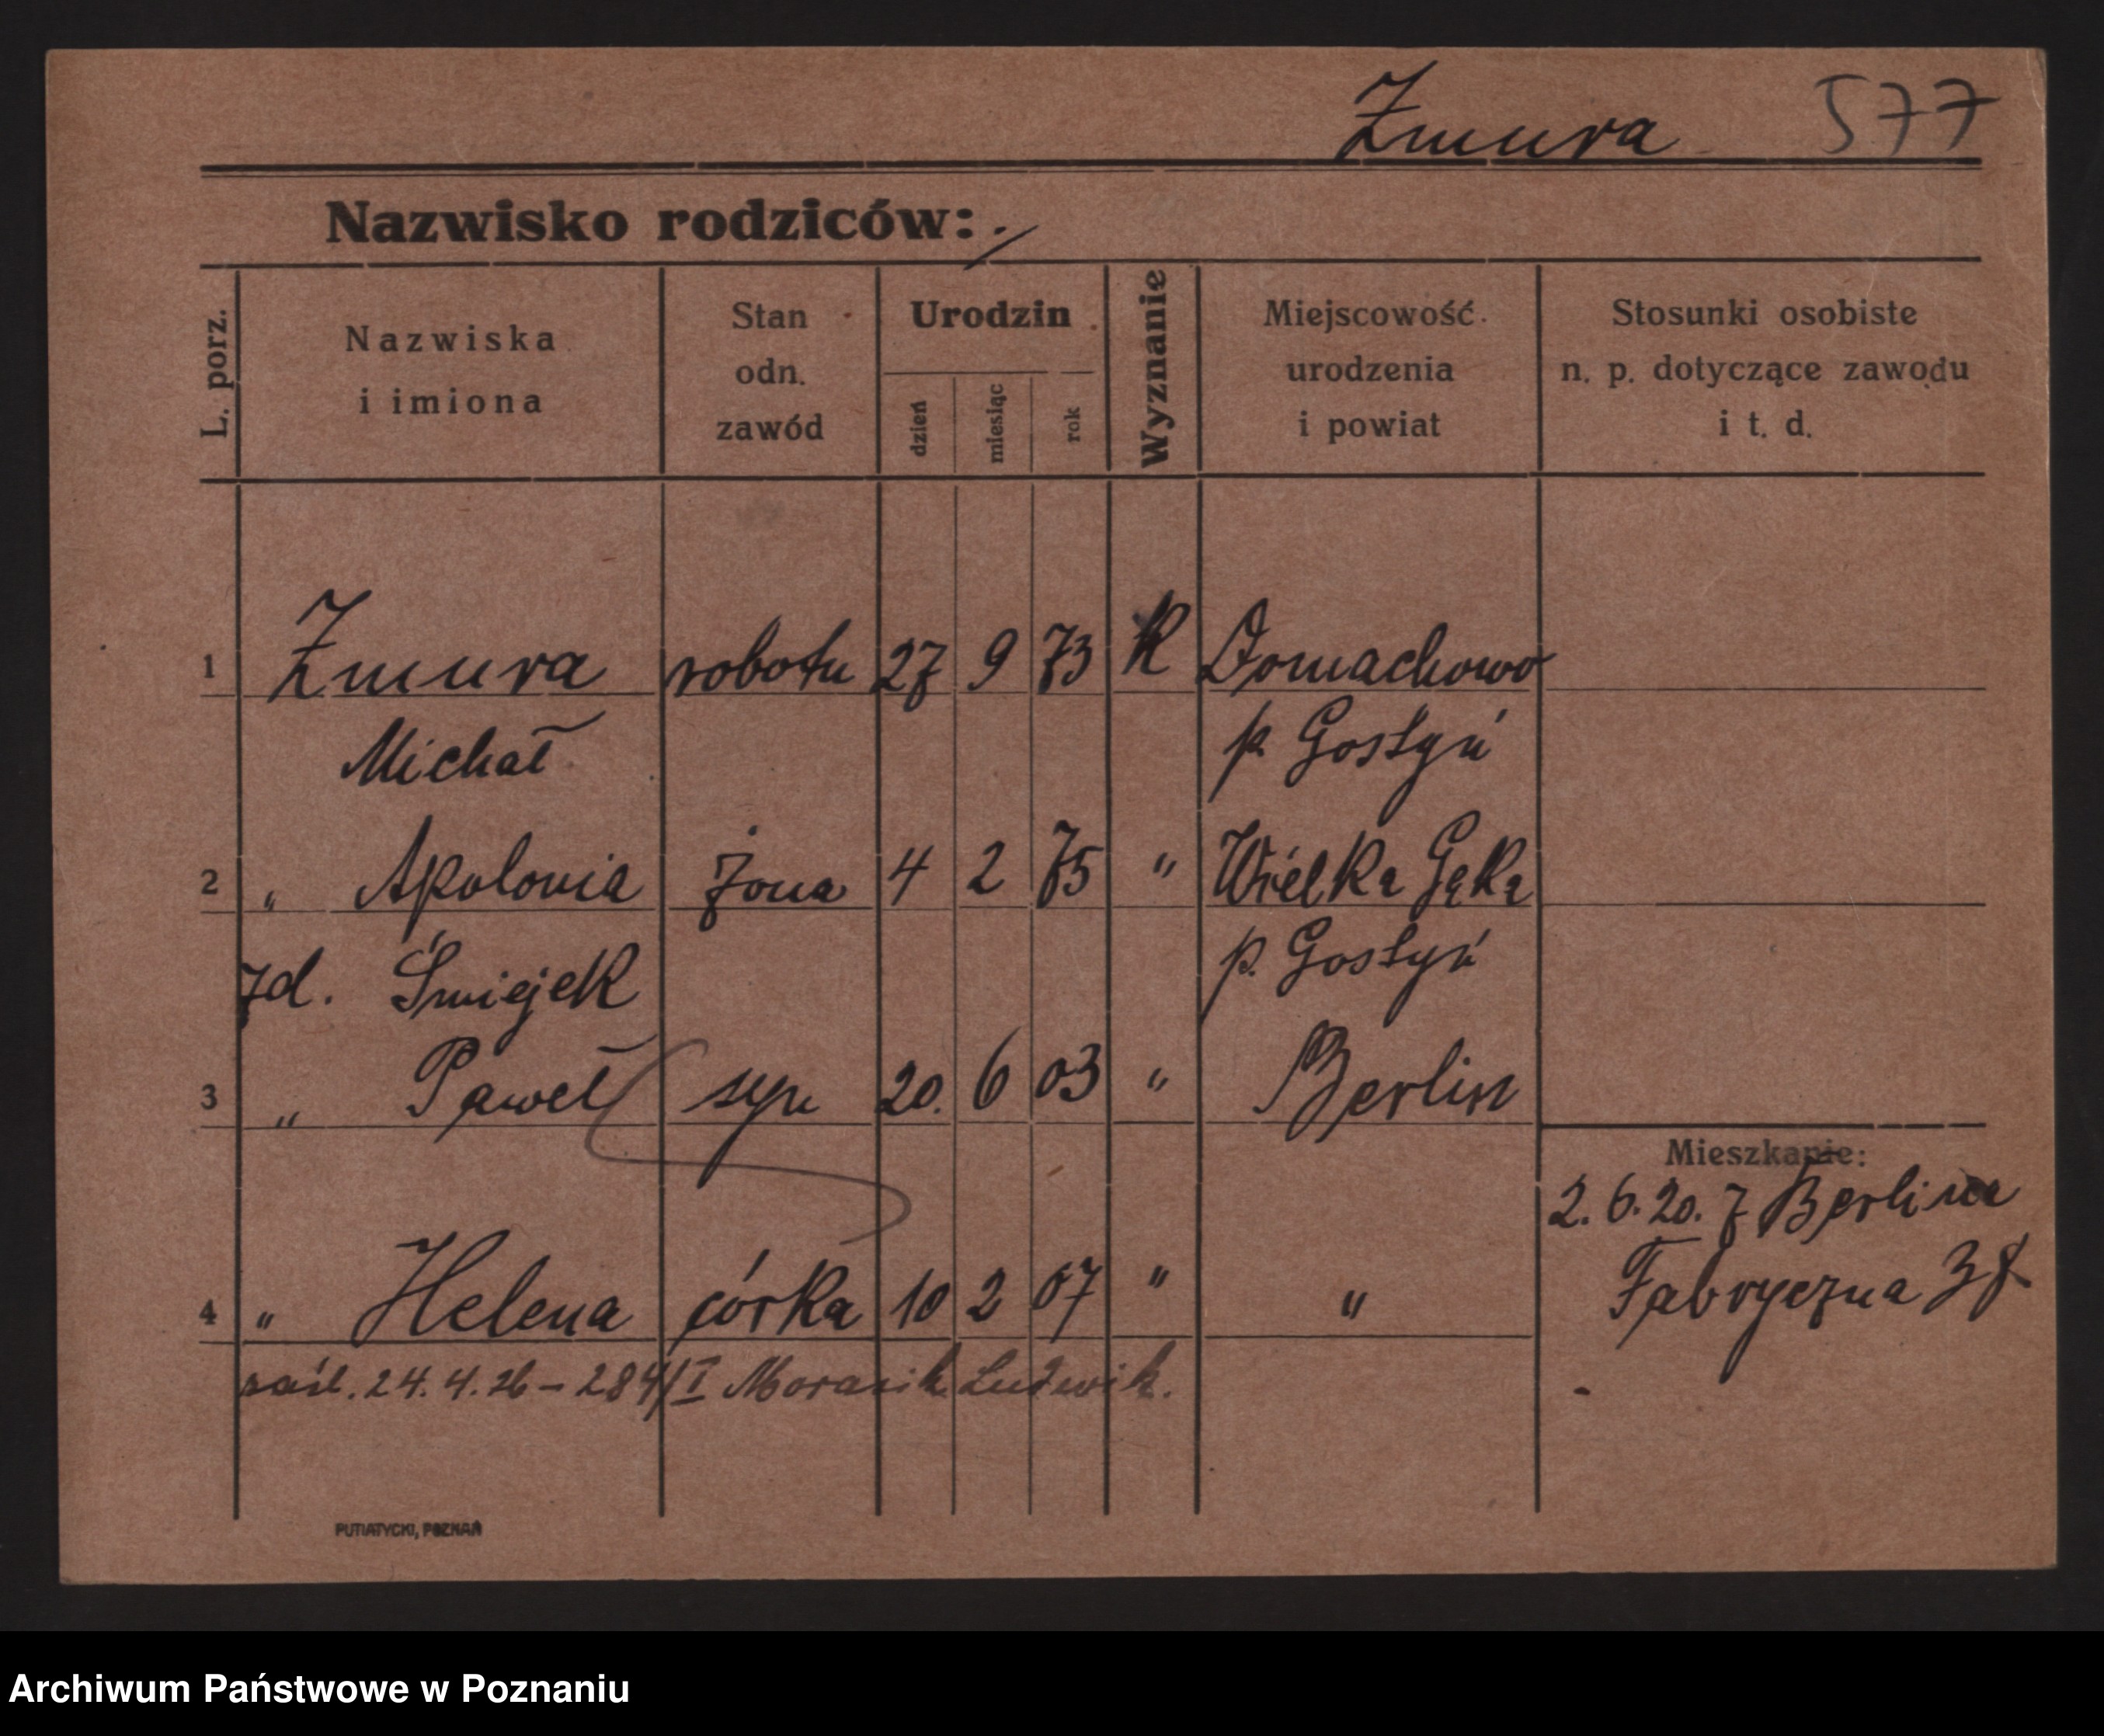 Żmura 577
Nazwisko rodziców: ./
L. porz. Nazwiska i imiona Stan odn. zawód Urodzin dzień miesiąc rok Wyznanie Miejscowość urodzenia i powiat Stosunki osobiste n. p. dotyczące zawodu i t. d.
1 Żmura robotn 27 9 73 K Domachowo
Michał p. Gostyń
2 " Apolonia żona 4 2 75 " Wielka Łęka
zd. Śmiejek p. Gostyń
3 " Paweł syn 20. 6 03 " Berlin
Mieszkanie:
2. 6. 20. z Berlina
Fabryczna 38
4 " Helena córka 10 2 07 " "
zaśl. 24. 4. 26 – 284/I Morasik Ludwik.
PUTIATYCKI, POZNAŃ
Archiwum Państwowe w Poznaniu